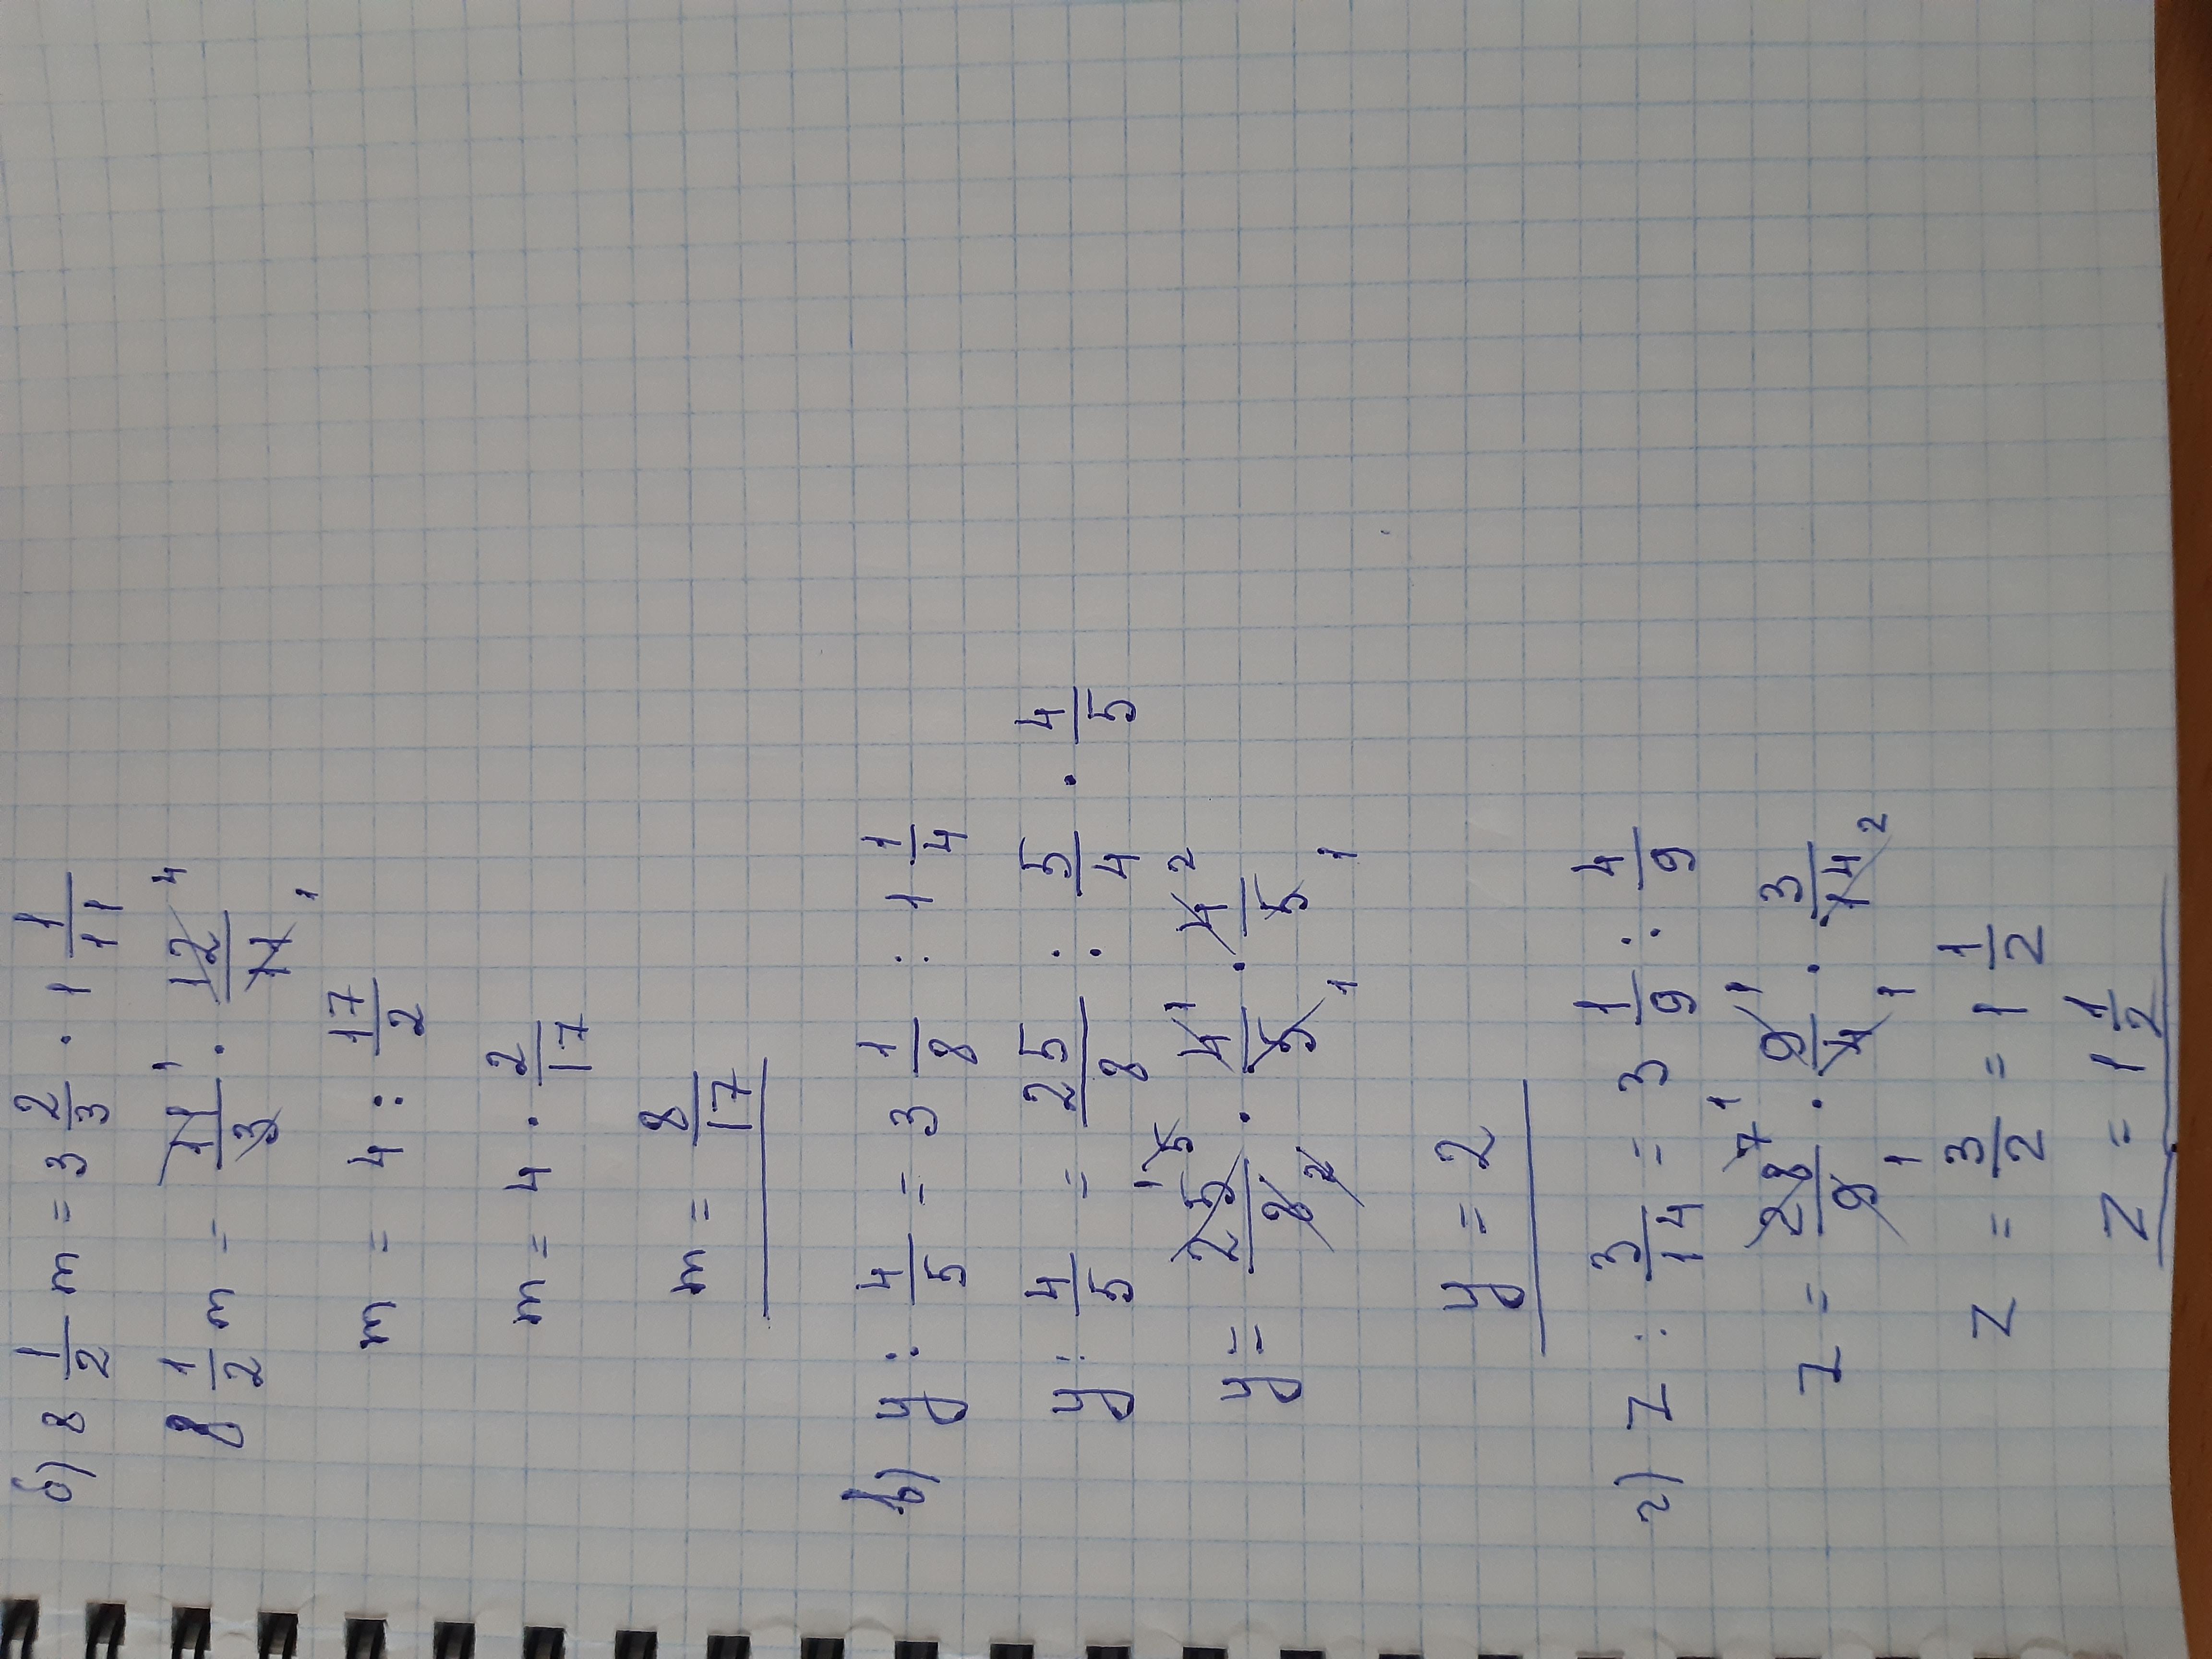 б) 8 1/2 m = 3 2/3 · 1 1/11
8 1/2 m = 11/3 ¹ · 12/11 ⁴ ₁
m = 4 : 17/2
m = 4 · 2/17
m = 8/17
в) y : 4/5 = 3 1/8 : 1 1/4
y : 4/5 = 25/8 : 5/4 · 4/5
y = 25/8 ¹ ⁵ ₂ · 4/5 ¹ ₁ · 4/5 ² ₁
y = 2
г) z : 3/14 = 3 1/9 : 4/9
z = 28/9 ⁷ ¹ ₁ · 9/4 ¹ ₁ · 3/14 ₂
z = 3/2 = 1 1/2
z = 1 1/2